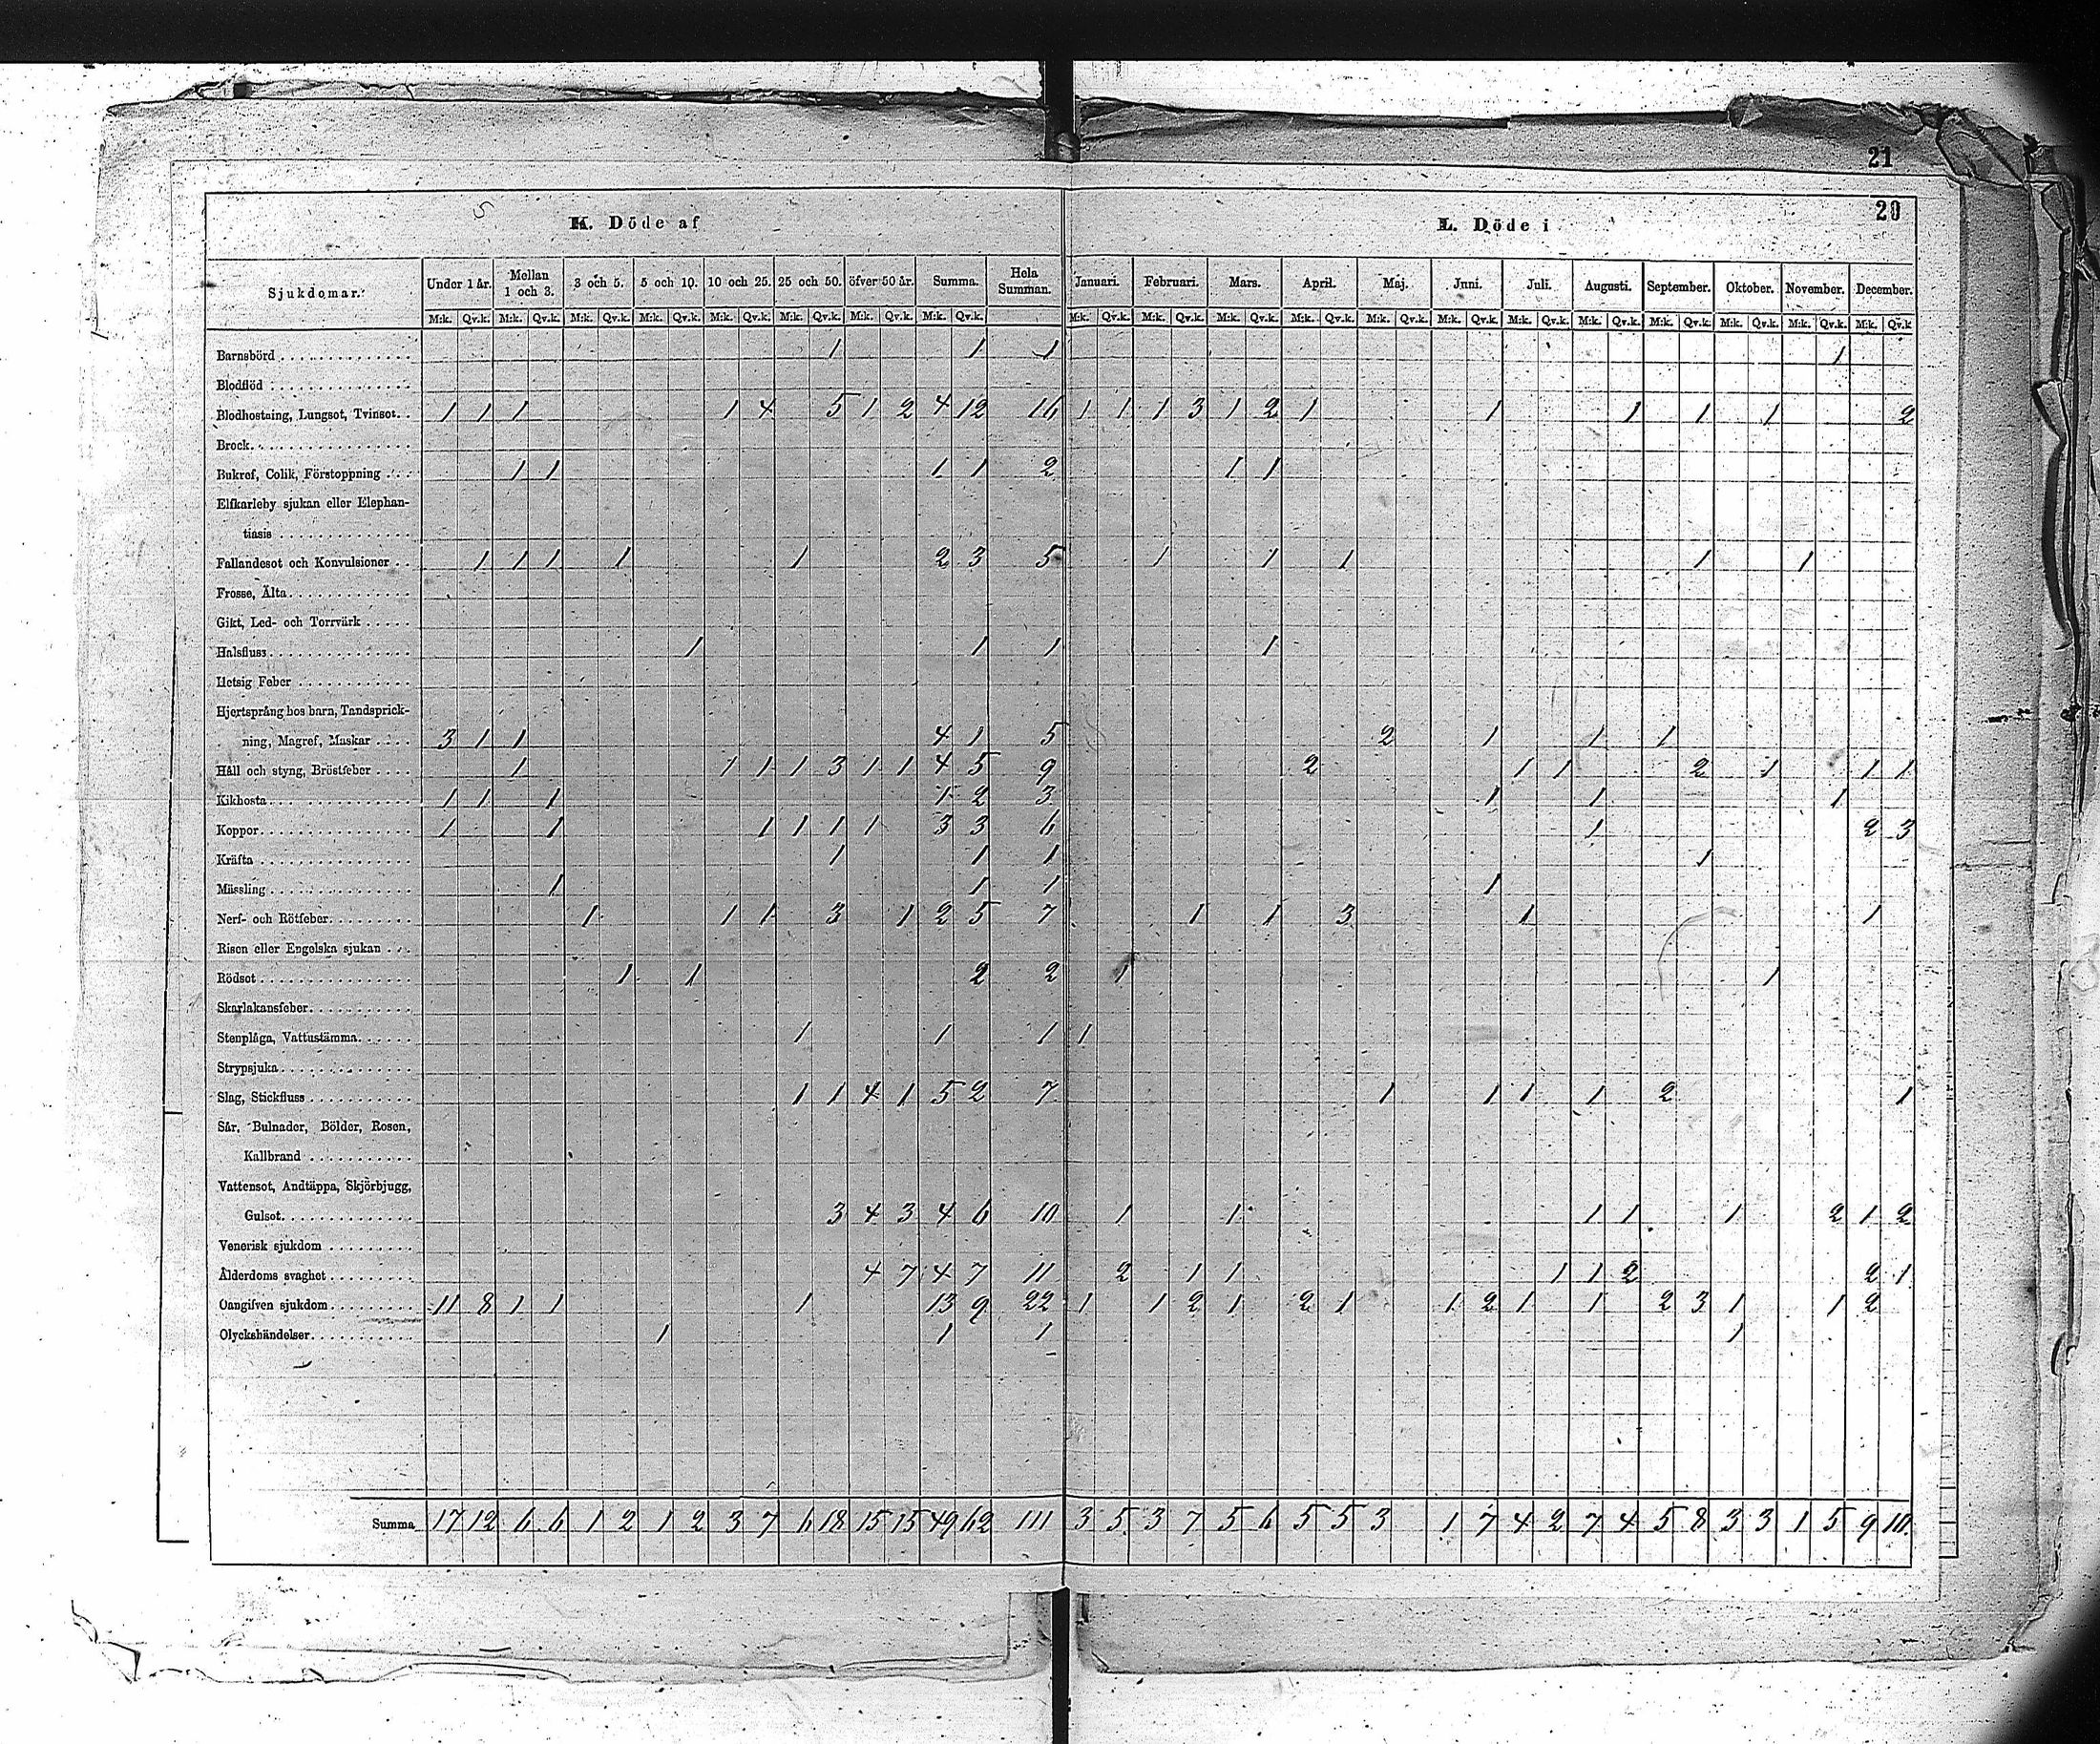 21
20
5
K. Döde af
L. Döde i
Sjukdomar. Under 1 år. Mellan 1 och 3. 3 och 5. 5 och 10. 10 och 25. 25 och 50. öfver 50 år. Summa. Hela Summan. Januari. Februari. Mars. April. Maj. Juni. Juli. Augusti. September. Oktober. November. December.
M:k. Qv.k. M:k. Qv.k. M:k. Qv.k. M:k. Qv.k. M:k. Qv.k. M:k. Qv.k. M:k. Qv.k. M:k. Qv.k. M:k. Qv.k. M:k. Qv.k. M:k. Qv.k. M:k. Qv.k. M:k. Qv.k. M:k. Qv.k. M:k. Qv.k. M:k. Qv.k. M:k. Qv.k. M:k. Qv.k. M:k. Qv.k. M:k. Qv.k
Barnsbörd 1 1 1 1
Blodflöd
Blodhostning, Lungsot, Tvinsot. 1 1 1 1 4 5 1 2 4 12 16 1 1 1 3 1 2 1 1 1 1 1 2
Brock
Bukref, Colik, Förstoppning 1 1 1 1 2 1 1
Elfkarleby sjukan eller Elephan-
tiasis
Fallandesot och Konvulsioner 1 1 1 1 1 2 3 5 1 1 1 1 1
Frosse, Älta
Gikt, Led- och Torrvärk
Halsfluss 1 1 1 1
Hetsig Feber
Hjertsprång hos barn, Tandsprick-
ning, Magref, Maskar 3 1 1 4 1 5 2 1 1 1
Håll och styng, Bröstfeber 1 1 1 1 3 1 1 4 5 9 2 1 1 2 1 1 1
Kikhosta 1 1 1 1 2 3 1 1 1
Koppor 1 1 1 1 1 1 3 3 6 1 2 3
Kräfta 1 1 1 1
Mässling 1 1 1 1
Nerf- och Rötfeber 1 1 1 3 1 2 5 7 1 1 3 1 1
Risen eller Engelska sjukan
Rödsot 1 1 2 2 1 1
Skarlakansfeber
Stenplåga, Vattustämma 1 1 1 1
Strypsjuka
Slag, Stickfluss 1 1 4 1 5 2 7 1 1 1 1 2 1
Sår, Bulnader, Bölder, Rosen,
Kallbrand
Vattensot, Andtäppa, Skjörbjugg,
Gulsot 3 4 3 4 6 10 1 1 1 1 1 2 1 2
Venerisk sjukdom
Ålderdoms svaghet 4 7 4 7 11 2 1 1 1 1 2 2 1
Oangifven sjukdom 11 8 1 1 1 13 9 22 1 1 2 1 2 1 1 2 1 1 2 3 1 1 2
Olyckshändelser 1 1 1 1
Summa 17 12 6 6 1 2 1 2 3 7 6 18 15 15 49 62 111 3 5 3 7 5 6 5 5 3 1 7 4 2 7 4 5 8 3 3 1 5 9 10